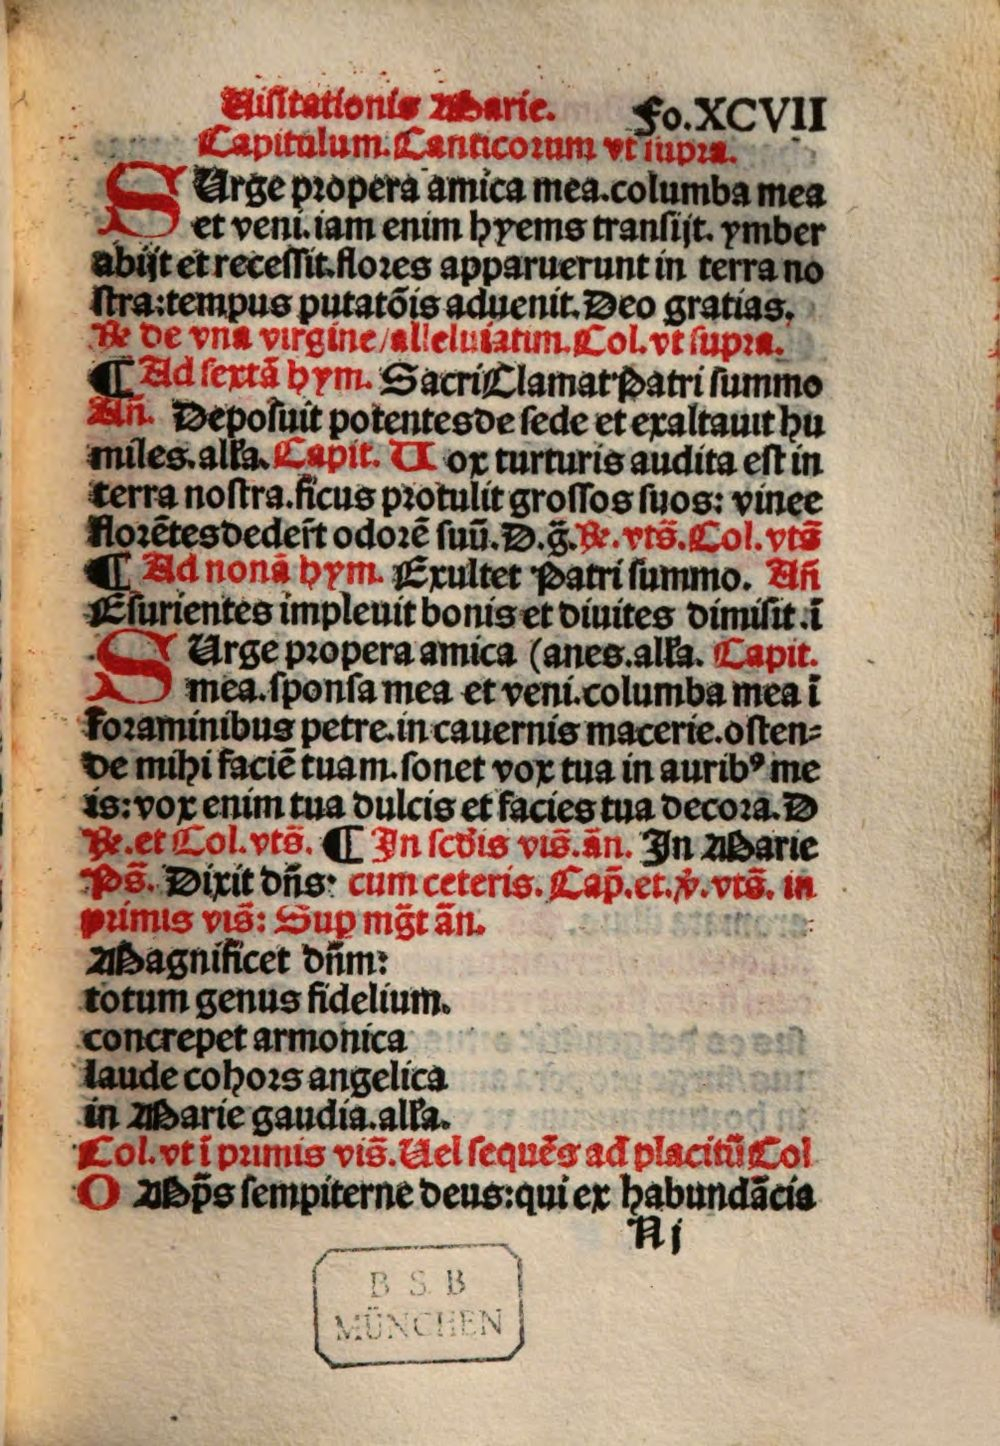 Uisitationis Marie. Fo.XCVII
Capitulum. Canticorum vt supra.
SUrge propera amica mea.columba mea
et veni.iam enim hyems transijt. ymber
abijt et recessit.flores apparuerunt in terra no
stra:tempus putatõis aduenit.Deo gratias.
℞ de vna virgine/alleluiatim.Col.vt supra.
¶ Ad sextã hym. Sacri Clamat Patri summo
Añ. Deposuit potentes de sede et exaltauit hu
miles.alľa.Capit. Uox turturis audita est in
terra nostra.ficus protulit grossos suos: vinee
florẽtes dederr̃t odorẽ suũ.D.g̃.℞.vts̃.Col.vts̃
¶ Ad nonã hym. Exultet Patri summo. Añ
Esurientes impleuit bonis et diuites dimisit .ĩ
SUrge propera amica (anes.alľa. Capit.
mea.sponsa mea et veni.columba mea ĩ
foraminibus petre.in cauernis macerie.osten=
de mihi faciẽ tuam.sonet vox tua in auribꝰ me
is:vox enim tua dulcis et facies tua decora.D
℞.et Col.vts̃. ¶ In scďis vis̃.ãn. In Marie
Ps̃. Dixit dñs: cum ceteris. Cap̃.et.ꝟ.vts̃. in
primis vis̃: Sup mg̃t ãn.
Magnificet dñm:
totum genus fidelium.
concrepet armonica
laude cohors angelica
in Marie gaudia.alľa.
Col.vt ĩ primis vis̃.Uel sequẽs ad placitũ Col
OMp̃s sempiterne deus:qui ex habundãcia
N j
B S B
MÜNCHEN